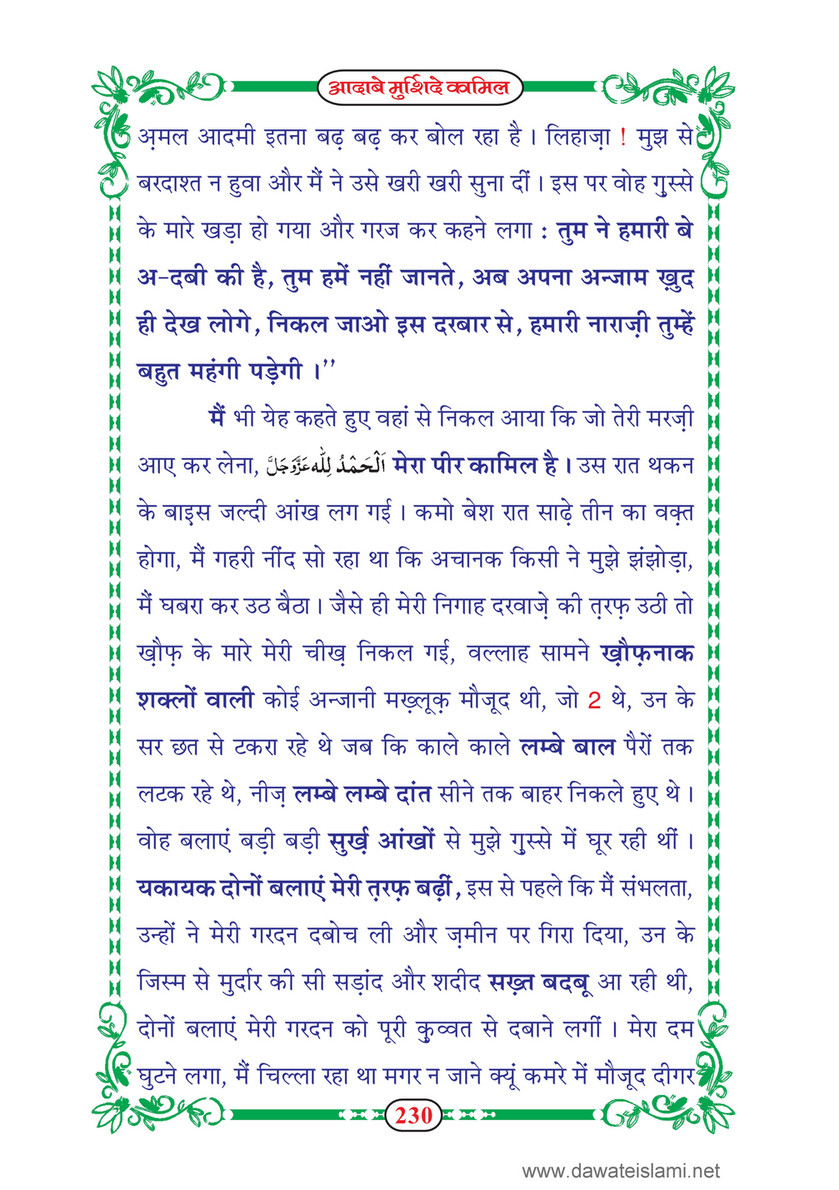 आदाबे मुर्शिदे कामिल
अ़मल आदमी इतना बढ़ बढ़ कर बोल रहा है । लिहाज़ा ! मुझ से
बरदाश्त न हुवा और मैं ने उसे खरी खरी सुना दीं । इस पर वोह गुस्से
के मारे खड़ा हो गया और गरज कर कहने लगा : तुम ने हमारी बे
अ-दबी की है, तुम हमें नहीं जानते, अब अपना अन्जाम ख़ुद
ही देख लोगे, निकल जाओ इस दरबार से, हमारी नाराज़ी तुम्हें
बहुत महंगी पड़ेगी ।’’
मैं भी येह कहते हुए वहां से निकल आया कि जो तेरी मरज़ी
आए कर लेना, اَلْحَمْدُ لِلّٰه عَزَّوَجَلَّ मेरा पीर कामिल है । उस रात थकन
के बाइस जल्दी आंख लग गई । कमो बेश रात साढ़े तीन का वक़्त
होगा, मैं गहरी नींद सो रहा था कि अचानक किसी ने मुझे झंझोड़ा,
मैं घबरा कर उठ बैठा । जैसे ही मेरी निगाह दरवाज़े की त़रफ़ उठी तो
ख़ौफ़ के मारे मेरी चीख़ निकल गई, वल्लाह सामने ख़ौफ़नाक
शक्लों वाली कोई अन्जानी मख़्लूक़ मौजूद थी, जो 2 थे, उन के
सर छत से टकरा रहे थे जब कि काले काले लम्बे बाल पैरों तक
लटक रहे थे, नीज़ लम्बे लम्बे दांत सीने तक बाहर निकले हुए थे ।
वोह बलाएं बड़ी बड़ी सुर्ख़ आंखों से मुझे गुस्से में घूर रही थीं ।
यकायक दोनों बलाएं मेरी त़रफ़ बढ़ीं, इस से पहले कि मैं संभलता,
उन्हों ने मेरी गरदन दबोच ली और ज़मीन पर गिरा दिया, उन के
जिस्म से मुर्दार की सी सड़ांद और शदीद सख़्त बदबू आ रही थी,
दोनों बलाएं मेरी गरदन को पूरी कुव्वत से दबाने लगीं । मेरा दम
घुटने लगा, मैं चिल्ला रहा था मगर न जाने क्यूं कमरे में मौजूद दीगर
230
www.dawateislami.net